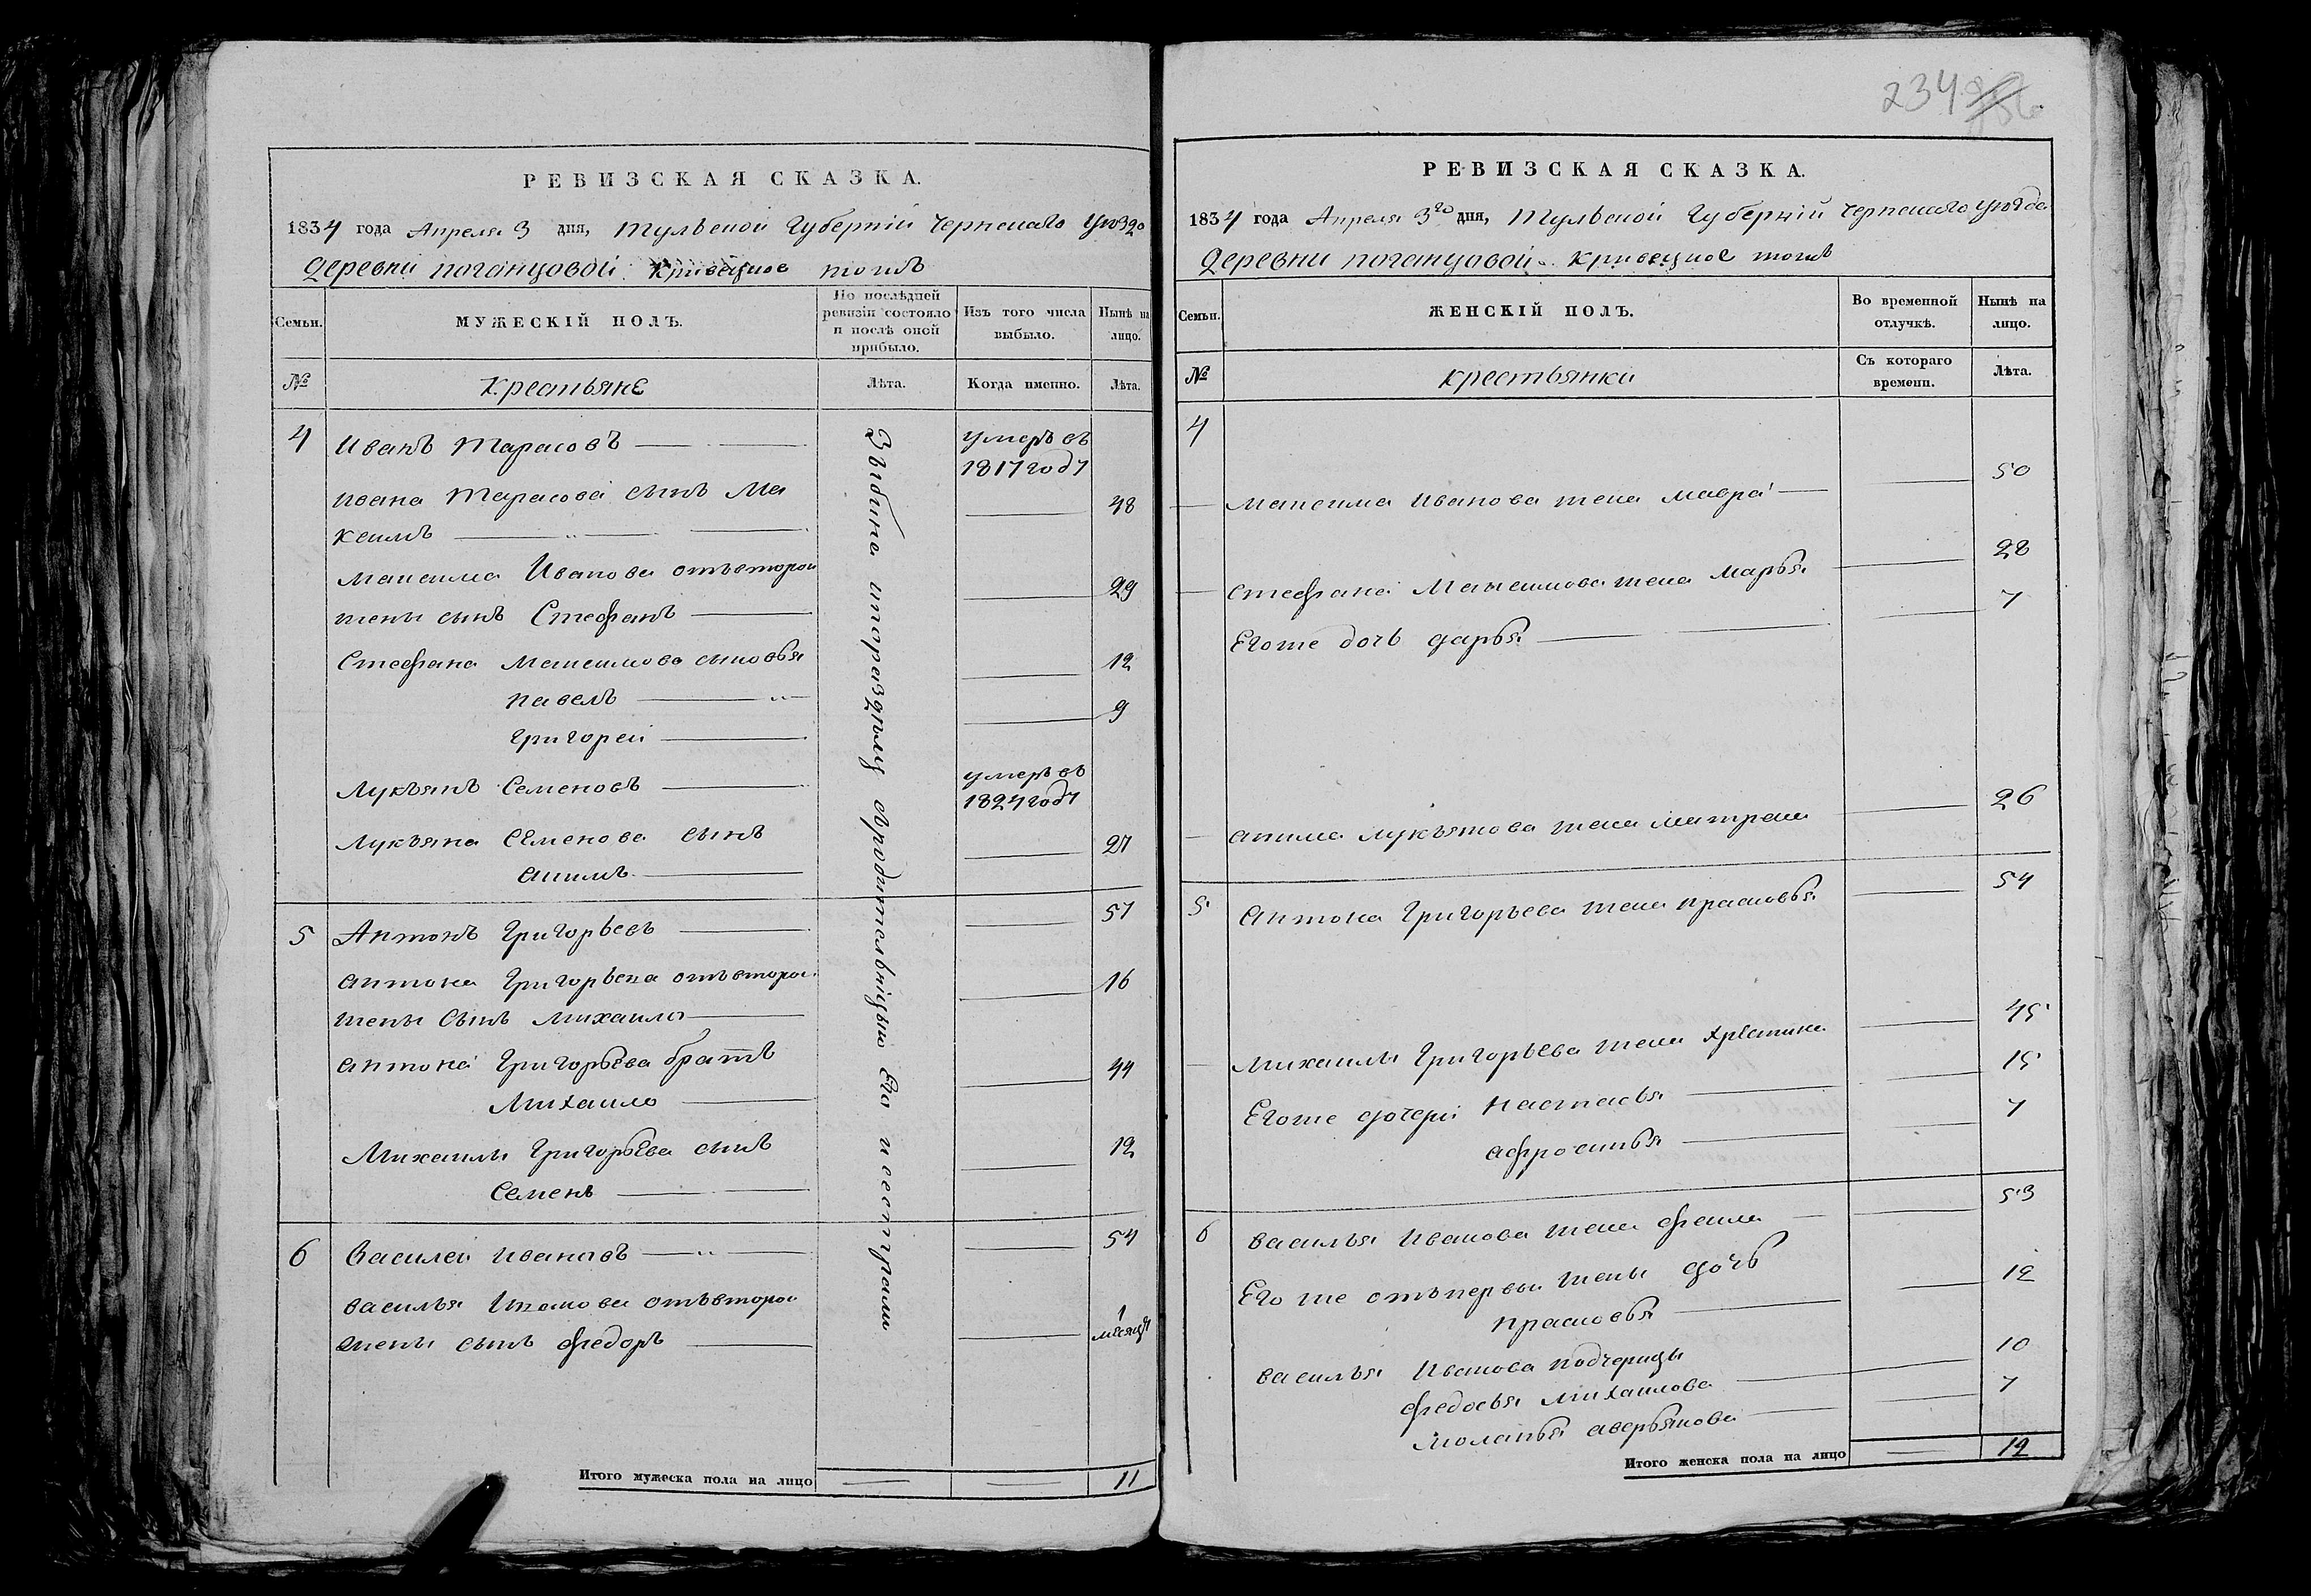 234
РЕВИЗСКАЯ СКАЗКА.
1834 года Апреля 3 дня, Тульской Губернїи Чернскаго Уѣзда
деревни погандовой Кривецкое тожъ
Семьи.
МУЖЕСКІЙ ПОЛЪ.
По послѣдней ревизіи состояло и послѣ оной прибыло.
Изъ того числа выбыло.
Нынѣ на лицо.
№
Крестьяне
Лѣта.
Когда именно.
Лѣта.
4 Иванъ Тарасовъ умеръ въ 1817 году
Ивана Тарасова сынъ Ма
ксимъ 48
Максима Иванова отъ второй
жены сынъ Стефанъ 29
Стефана Максимова сыновья
павелъ 12
Григорей 9
Лукъянъ Семеновъ умеръ въ 1824 году
Лукъяна Семенова сынъ
акимъ 27
5 Антонъ Григорьевъ 57
антона Григорьева отъ второй
жены сынъ михаила 16
антона Григорьева братъ
Михаило 44
Михаилы Григорьева сынъ
Семенъ 12
6 Василей Ивановъ 54
василья Иванова отъ второй
жены сынъ федоръ 1 мѣсяцъ
Итого мужеска пола на лицо 11
РЕВИЗСКАЯ СКАЗКА.
1834 года Апреля 3го дня, Тульской Губернїи Чернскаго Уѣзда
деревни погандовой Кривецкое тожъ
Семьи.
ЖЕНСКІЙ ПОЛЪ.
Во временной отлучкѣ.
Нынѣ на лицо.
№
крестьянки
Съ котораго времени.
Лѣта.
4
максима Иванова жена мавра 50
стефана Максимова жена марья 28
Егоже дочь дарья 7
акима лукъянова жена матрена 26
5 антона Григорьева жена прасковья 54
михаилы Григорьева жена Христина 45
Егоже дочери настасья 15
афросинья 7
6 василья Иванова жена фекла 53
Его же отъ первой жены дочь
прасковья 12
василья Иванова подчерицы
федосья михаилова 10
моланья аверьянова 7
Итого женска пола на лицо 12